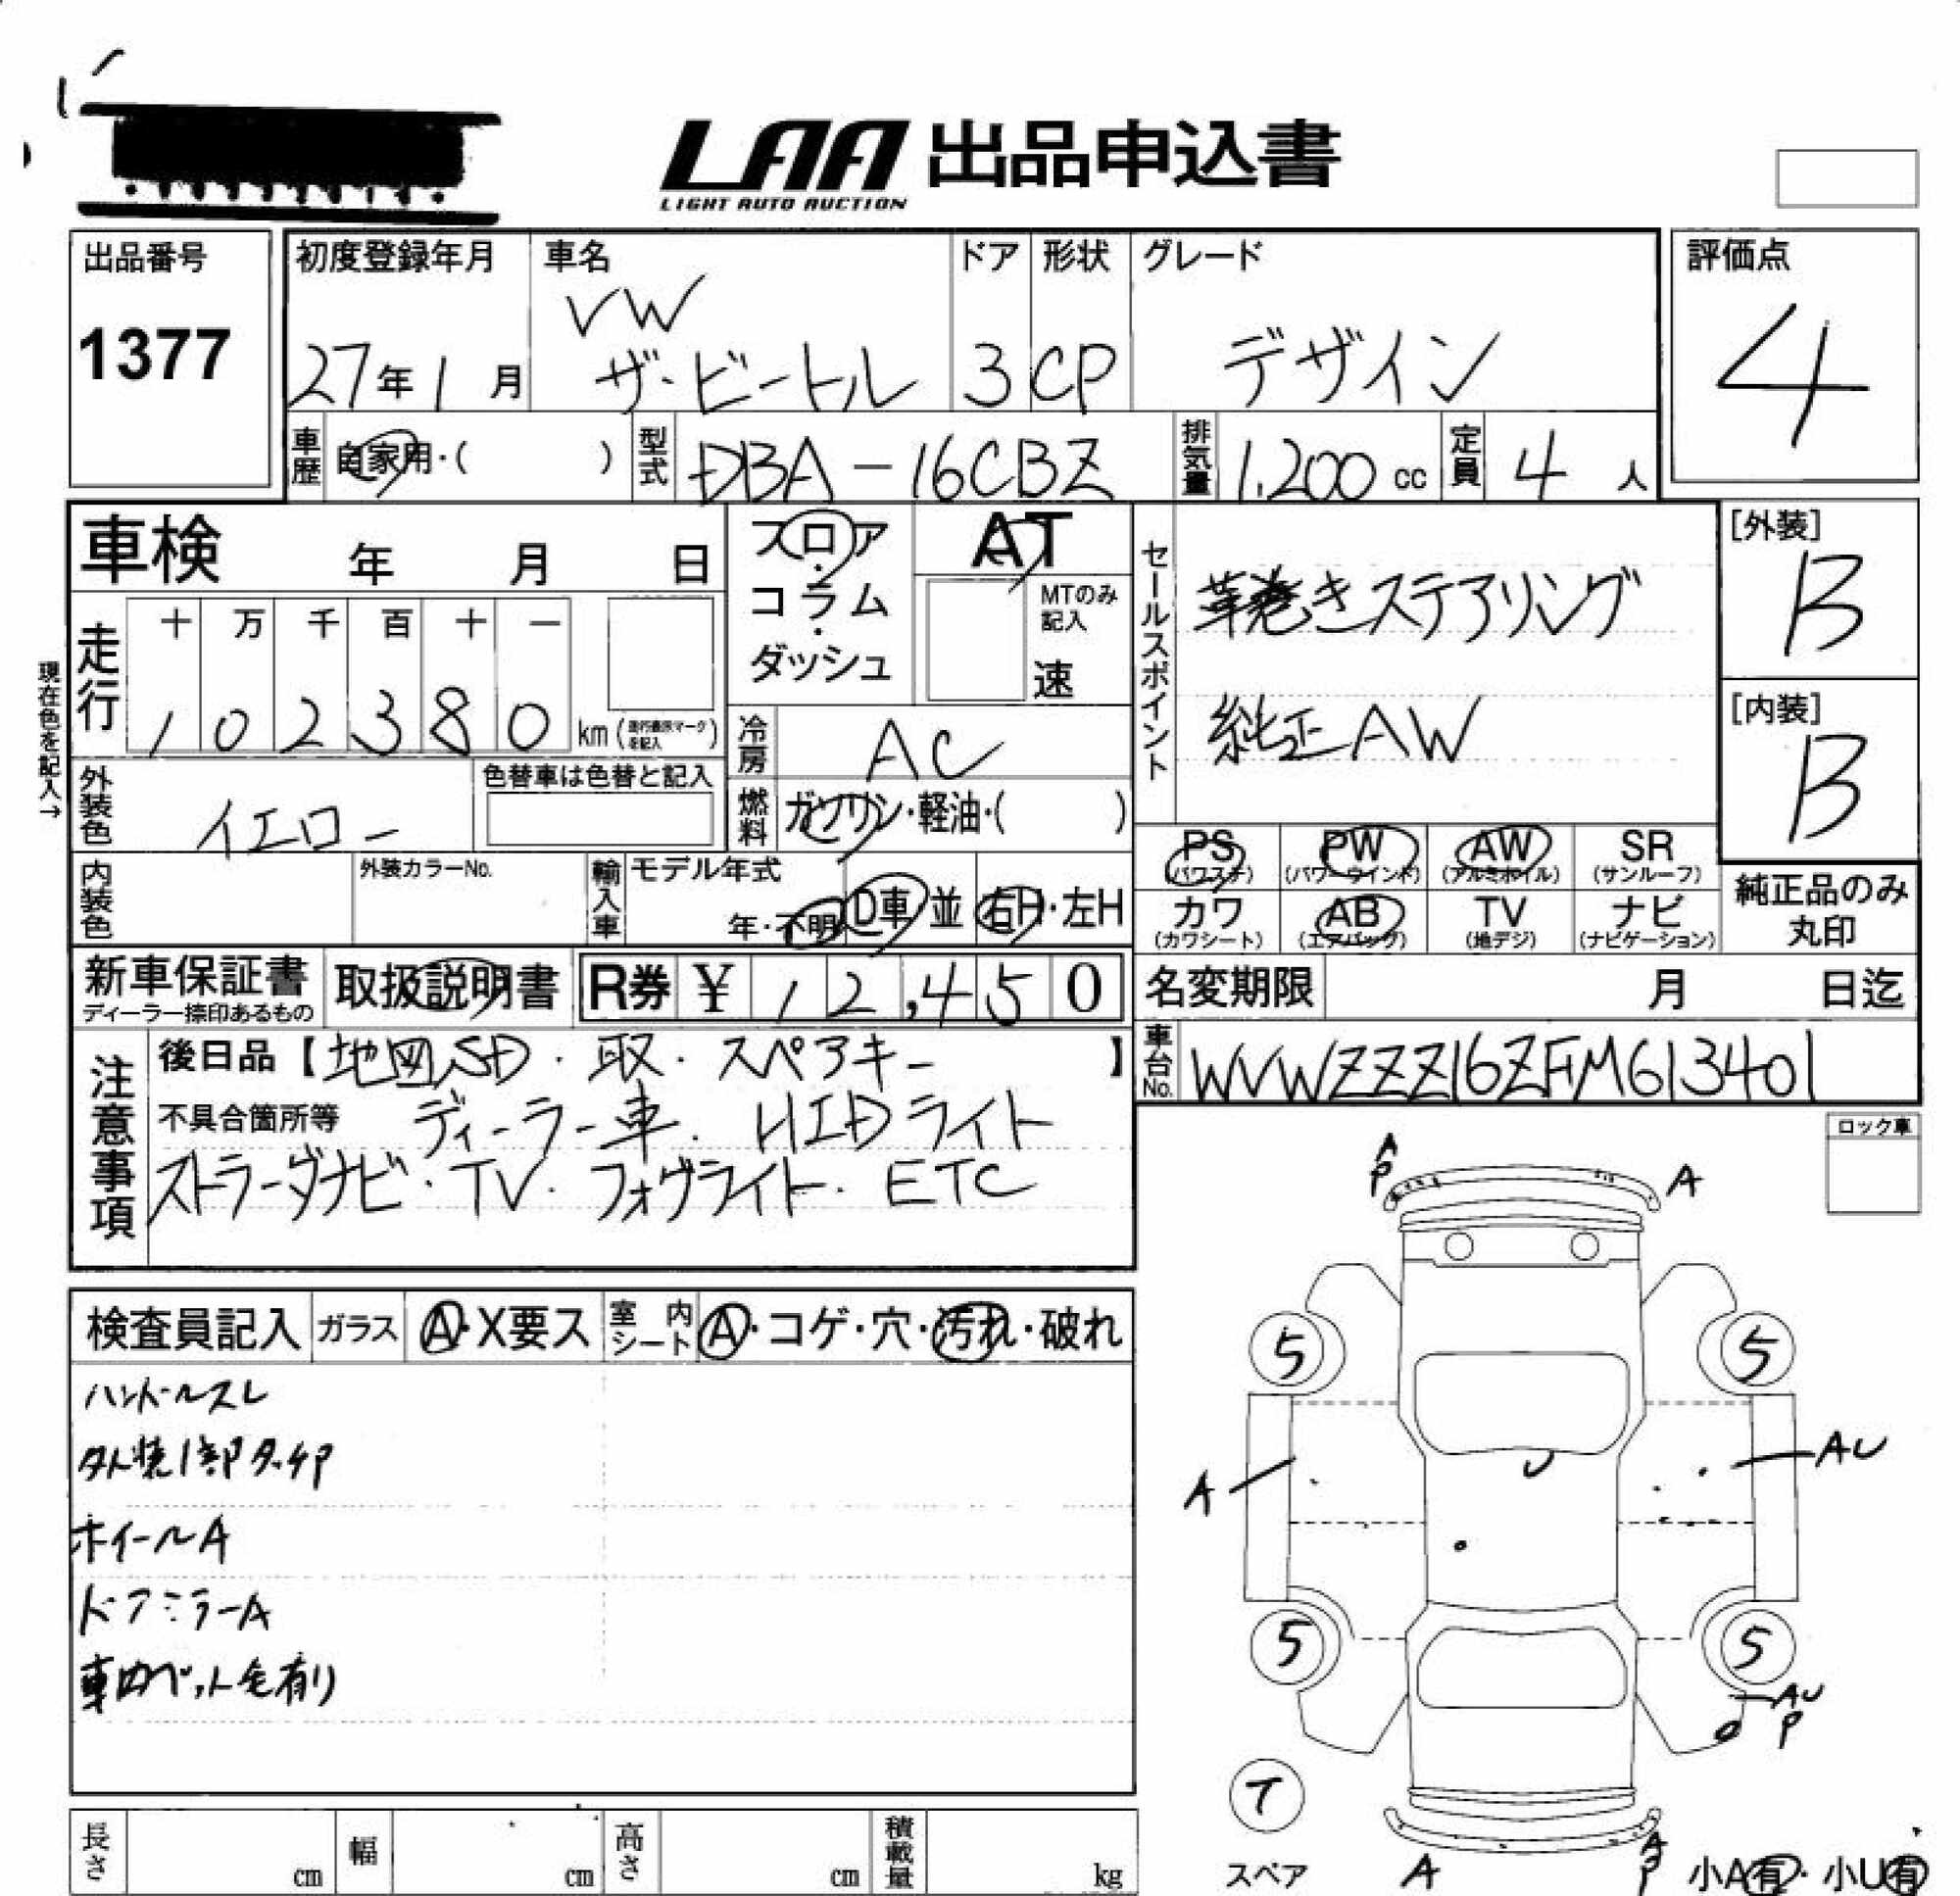 LAA 出品申込書
LIGHT AUTO AUCTION
出品番号
1377
初度登録年月
27年1月
車名
VW
ザ・ビートル
ドア
3
形状
CP
グレード
デザイン
評価点
4
車歴 自家用・( )
型式 DBA-16CBZ
排気量 1,200 cc
定員 4 人
車検 年 月 日
フロア・コラム・ダッシュ
AT
MTのみ記入
速
セールスポイント
革巻きステアリング
純正AW
[外装]
B
[内装]
B
現在色を記入→
走行
十 万 千 百 十 一
1 0 2 3 8 0 km
冷房 AC
外装色 イエロー
色替車は色替と記入
燃料 ガソリン・軽油・( )
PS (パワステ) PW (パワーウインド) AW (アルミホイル) SR (サンルーフ)
カワ (カワシート) AB (エアバッグ) TV (地デジ) ナビ (ナビゲーション)
純正品のみ丸印
内装色
外装カラーNo.
輸入車
モデル年式
年・不明
D車・並
右H・左H
新車保証書
ディーラー捺印あるもの
取扱説明書
R券 ¥ 12,450
名変期限 月 日迄
車台No. WVWZZZ16ZFM613401
注意事項
後日品【地図SD・取・スペアキー】
不具合箇所等 ディーラー車. HIDライト
ストラーダナビ・TV. フォグライト. ETC
ロック車
検査員記入 ガラス A・X要ス 室内シート A・コゲ・穴・汚れ・破れ
ハンドルスレ
外装1部タッチP
ホイールA
ドアミラーA
車内ペット毛有り
A
P
A
5
5
A
U
AU
5
5
AU
P
T
スペア
A
A
P
小A有・小U有
長さ cm 幅 cm 高さ cm 積載量 kg